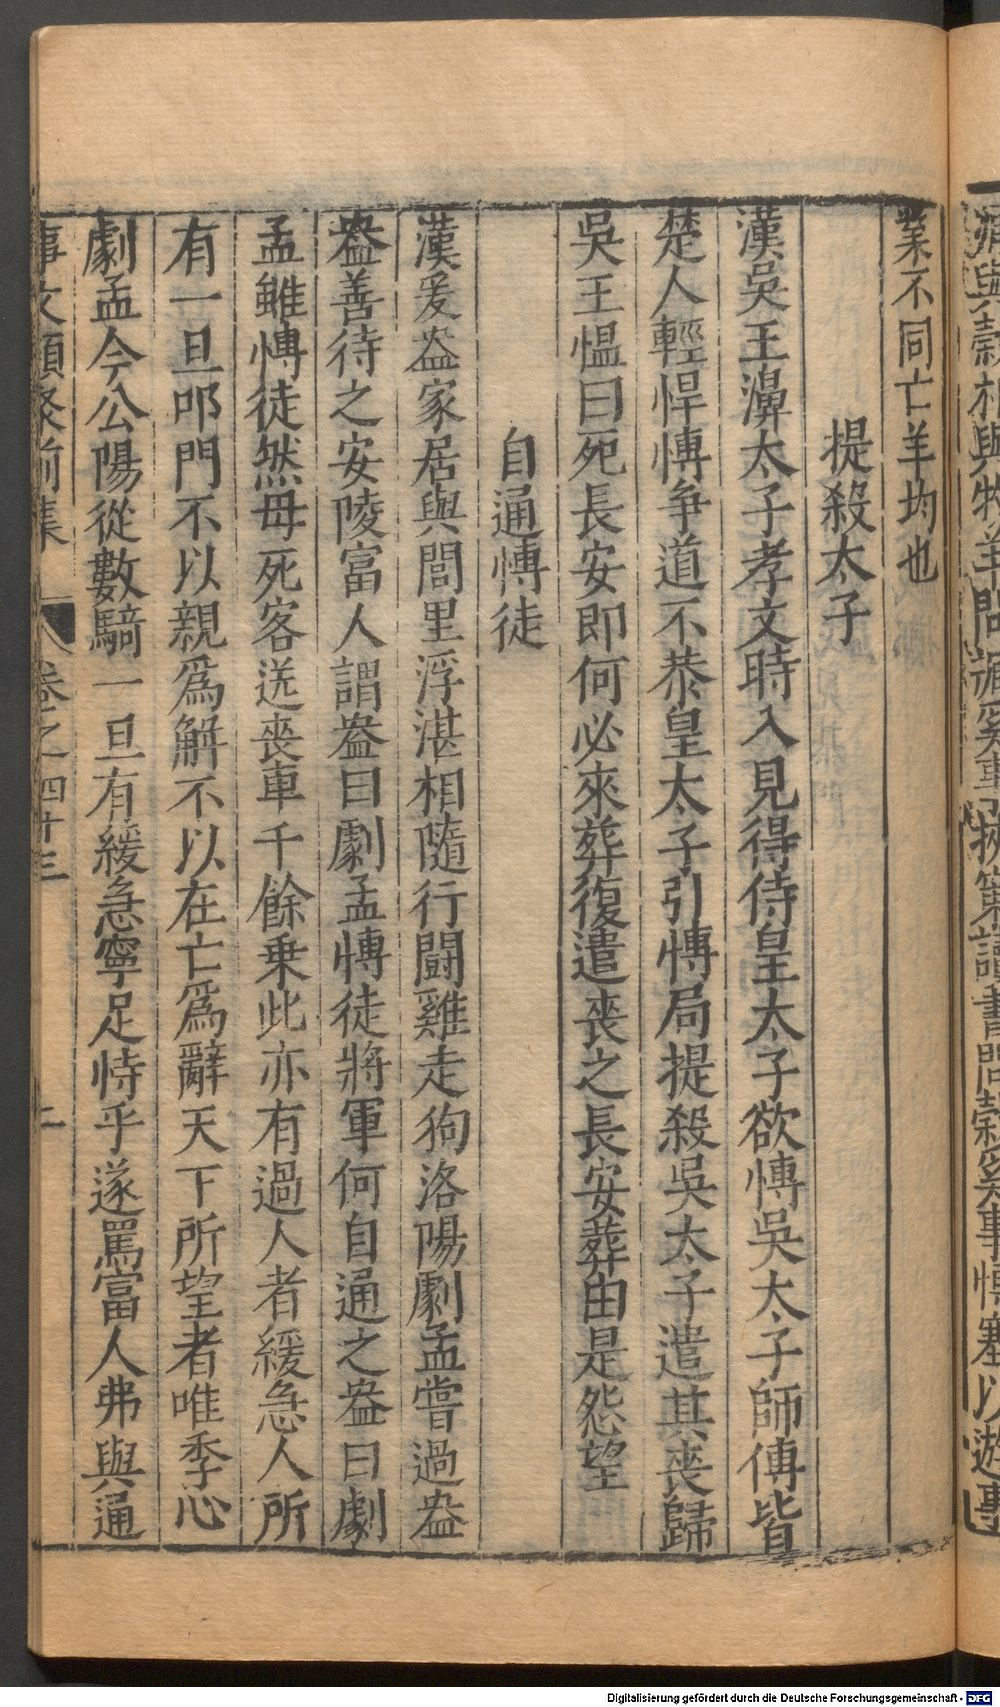 業不同亡羊均也
提殺太子
漢吳王濞太子孝文時入見得侍皇太子欲愽吳太子師傅皆
楚人輕悍愽争道不恭皇太子引愽局提殺吳太子遣其丧歸
吳王愠曰死長安即何必來葬復遣丧之長安葬由是怨望
自通愽徒
漢爰盎家居與閭里浮湛相隨行鬬雞走狗洛陽劇孟嘗過盎
盎善待之安陵富人謂盎曰劇孟愽徒將軍何自通之盎曰劇
孟雖愽徒然母死客送丧車千餘乗此亦有過人者緩急人所
有一旦叩門不以親爲解不以在亡爲辭天下所望者唯季心
劇孟今公陽從數騎一旦有緩急寧足恃乎遂罵富人弗與通
事文類聚前集 卷之四十三 二
Digitalisierung gefördert durch die Deutsche Forschungsgemeinschaft - DFG